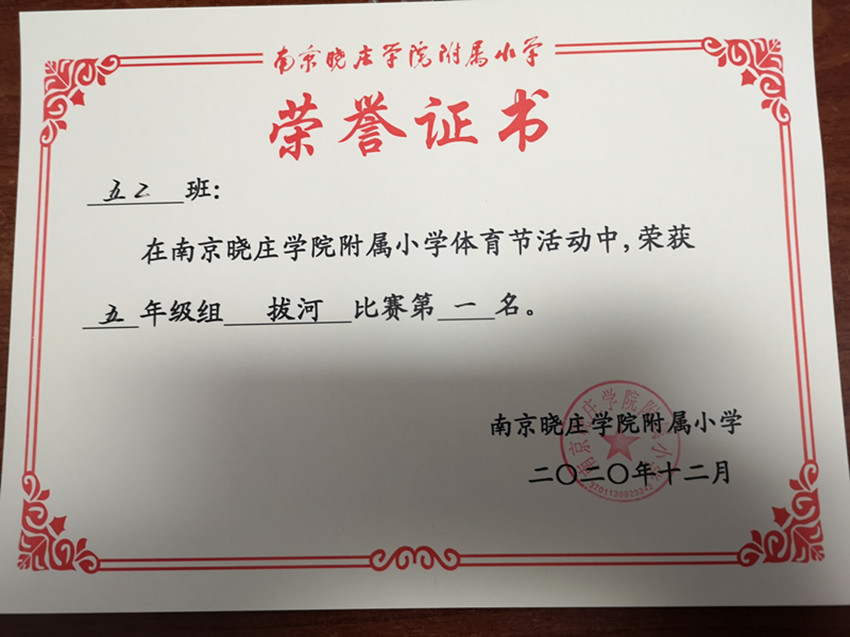 南京晓庄学院附属小学
荣誉证书
五2 班：
在南京晓庄学院附属小学体育节活动中，荣获
五 年级组 拔河 比赛第 一 名。
南京晓庄学院附属小学
二〇二〇年十二月
南京晓庄学院附属小学